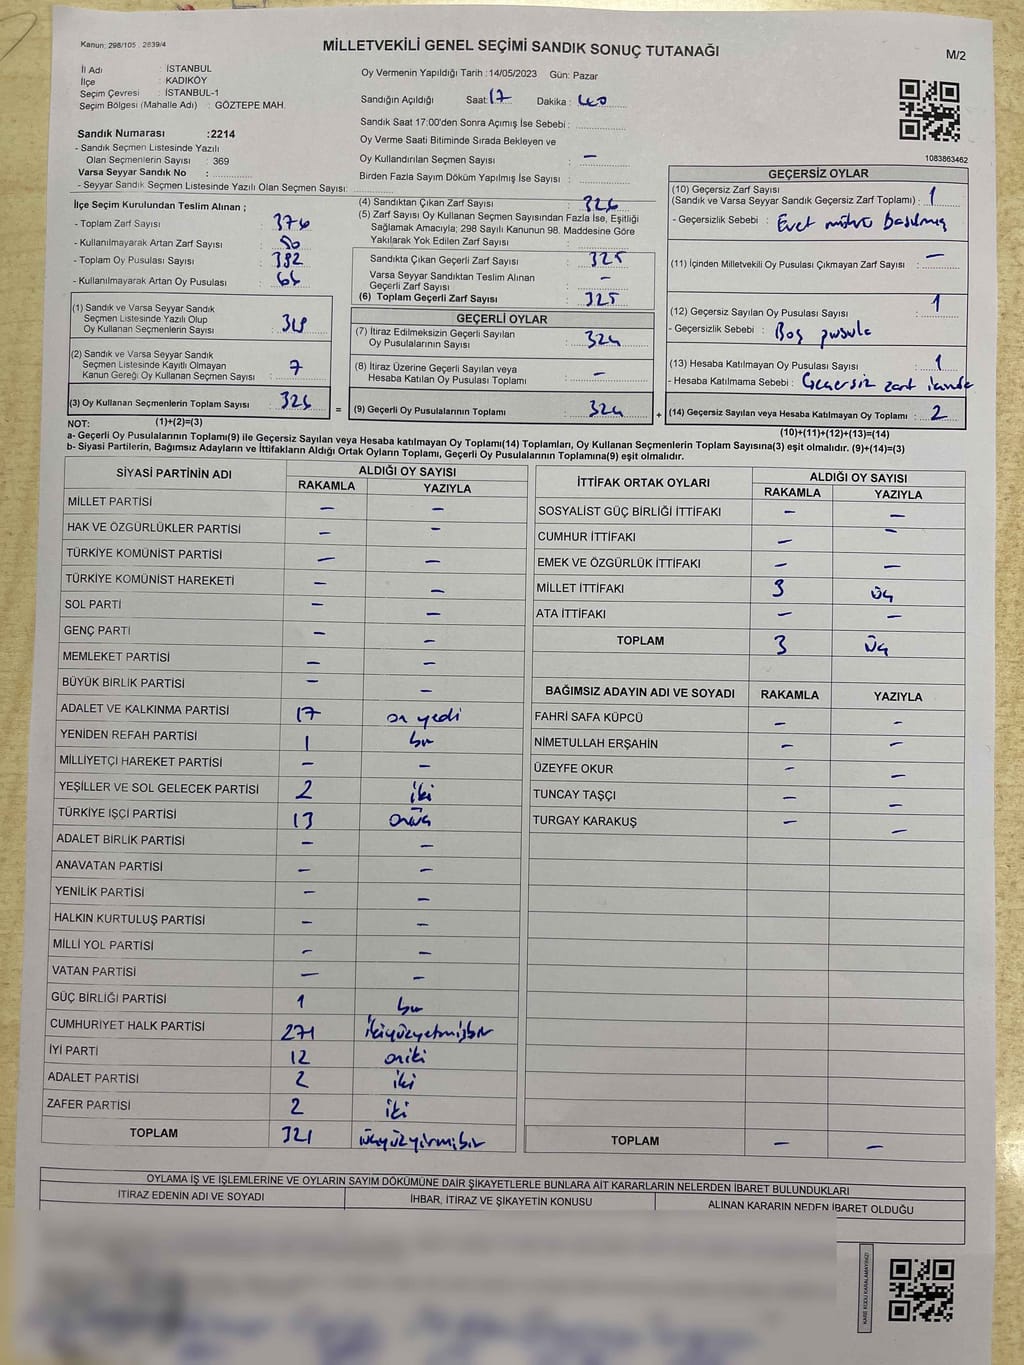 Kanun: 298/105 . 2839/4
MİLLETVEKİLİ GENEL SEÇİMİ SANDIK SONUÇ TUTANAĞI
M/2
İl Adı : İSTANBUL
İlçe : KADIKÖY
Seçim Çevresi : İSTANBUL-1
Seçim Bölgesi (Mahalle Adı) : GÖZTEPE MAH.
Sandık Numarası :2214
- Sandık Seçmen Listesinde Yazılı
Olan Seçmenlerin Sayısı : 369
Varsa Seyyar Sandık No :
- Seyyar Sandık Seçmen Listesinde Yazılı Olan Seçmen Sayısı:
Oy Vermenin Yapıldığı Tarih : 14/05/2023 Gün: Pazar
Sandığın Açıldığı Saat: 17 Dakika : 40
Sandık Saat 17:00'den Sonra Açımış İse Sebebi :
Oy Verme Saati Bitiminde Sırada Bekleyen ve
Oy Kullandırılan Seçmen Sayısı : –
Birden Fazla Sayım Döküm Yapılmış İse Sayısı :
1083863462
İlçe Seçim Kurulundan Teslim Alınan ;
- Toplam Zarf Sayısı : 376
- Kullanılmayarak Artan Zarf Sayısı : 50
- Toplam Oy Pusulası Sayısı : 392
- Kullanılmayarak Artan Oy Pusulası : 66
(1) Sandık ve Varsa Seyyar Sandık
Seçmen Listesinde Yazılı Olup
Oy Kullanan Seçmenlerin Sayısı : 319
(2) Sandık ve Varsa Seyyar Sandık
Seçmen Listesinde Kayıtlı Olmayan
Kanun Gereği Oy Kullanan Seçmen Sayısı : 7
(3) Oy Kullanan Seçmenlerin Toplam Sayısı : 326
(1)+(2)=(3)
(4) Sandıktan Çıkan Zarf Sayısı : 326
(5) Zarf Sayısı Oy Kullanan Seçmen Sayısından Fazla İse, Eşitliği
Sağlamak Amacıyla; 298 Sayılı Kanunun 98. Maddesine Göre
Yakılarak Yok Edilen Zarf Sayısı :
Sandıkta Çıkan Geçerli Zarf Sayısı : 325
Varsa Seyyar Sandıktan Teslim Alınan
Geçerli Zarf Sayısı : –
(6) Toplam Geçerli Zarf Sayısı : 325
GEÇERLİ OYLAR
(7) İtiraz Edilmeksizin Geçerli Sayılan
Oy Pusulalarının Sayısı : 324
(8) İtiraz Üzerine Geçerli Sayılan veya
Hesaba Katılan Oy Pusulası Toplamı : –
= (9) Geçerli Oy Pusulalarının Toplamı : 324
GEÇERSİZ OYLAR
(10) Geçersiz Zarf Sayısı
(Sandık ve Varsa Seyyar Sandık Geçersiz Zarf Toplamı) : 1
- Geçersizlik Sebebi : Evet mührü basılmış
(11) İçinden Milletvekili Oy Pusulası Çıkmayan Zarf Sayısı : –
(12) Geçersiz Sayılan Oy Pusulası Sayısı : 1
- Geçersizlik Sebebi : Boş pusula
(13) Hesaba Katılmayan Oy Pusulası Sayısı : 1
- Hesaba Katılmama Sebebi : Geçersiz zarf içinde
+ (14) Geçersiz Sayılan veya Hesaba Katılmayan Oy Toplamı : 2
(10)+(11)+(12)+(13)=(14)
NOT:
a- Geçerli Oy Pusulalarının Toplamı(9) ile Geçersiz Sayılan veya Hesaba katılmayan Oy Toplamı(14) Toplamları, Oy Kullanan Seçmenlerin Toplam Sayısına(3) eşit olmalıdır. (9)+(14)=(3)
b- Siyasi Partilerin, Bağımsız Adayların ve İttifakların Aldığı Ortak Oyların Toplamı, Geçerli Oy Pusulalarının Toplamına(9) eşit olmalıdır.
SİYASİ PARTİNİN ADI ALDIĞI OY SAYISI
RAKAMLA YAZIYLA
MİLLET PARTİSİ – –
HAK VE ÖZGÜRLÜKLER PARTİSİ – –
TÜRKİYE KOMÜNİST PARTİSİ – –
TÜRKİYE KOMÜNİST HAREKETİ – –
SOL PARTİ – –
GENÇ PARTİ – –
MEMLEKET PARTİSİ – –
BÜYÜK BİRLİK PARTİSİ – –
ADALET VE KALKINMA PARTİSİ 17 on yedi
YENİDEN REFAH PARTİSİ 1 bir
MİLLİYETÇİ HAREKET PARTİSİ – –
YEŞİLLER VE SOL GELECEK PARTİSİ 2 iki
TÜRKİYE İŞÇİ PARTİSİ 13 onüç
ADALET BİRLİK PARTİSİ – –
ANAVATAN PARTİSİ – –
YENİLİK PARTİSİ – –
HALKIN KURTULUŞ PARTİSİ – –
MİLLİ YOL PARTİSİ – –
VATAN PARTİSİ – –
GÜÇ BİRLİĞİ PARTİSİ 1 bir
CUMHURİYET HALK PARTİSİ 271 ikiyüzyetmişbir
İYİ PARTİ 12 oniki
ADALET PARTİSİ 2 iki
ZAFER PARTİSİ 2 iki
TOPLAM 321 üçyüzyirmibir
İTTİFAK ORTAK OYLARI ALDIĞI OY SAYISI
RAKAMLA YAZIYLA
SOSYALİST GÜÇ BİRLİĞİ İTTİFAKI – –
CUMHUR İTTİFAKI – –
EMEK VE ÖZGÜRLÜK İTTİFAKI – –
MİLLET İTTİFAKI 3 üç
ATA İTTİFAKI – –
TOPLAM 3 üç
BAĞIMSIZ ADAYIN ADI VE SOYADI RAKAMLA YAZIYLA
FAHRİ SAFA KÜPCÜ – –
NİMETULLAH ERŞAHİN – –
ÜZEYFE OKUR – –
TUNCAY TAŞÇI – –
TURGAY KARAKUŞ – –
TOPLAM – –
OYLAMA İŞ VE İŞLEMLERİNE VE OYLARIN SAYIM DÖKÜMÜNE DAİR ŞİKAYETLERLE BUNLARA AİT KARARLARIN NELERDEN İBARET BULUNDUKLARI
İTİRAZ EDENİN ADI VE SOYADI İHBAR, İTİRAZ VE ŞİKAYETİN KONUSU ALINAN KARARIN NEDEN İBARET OLDUĞU
KARE KODU KARALAMAYINIZ!